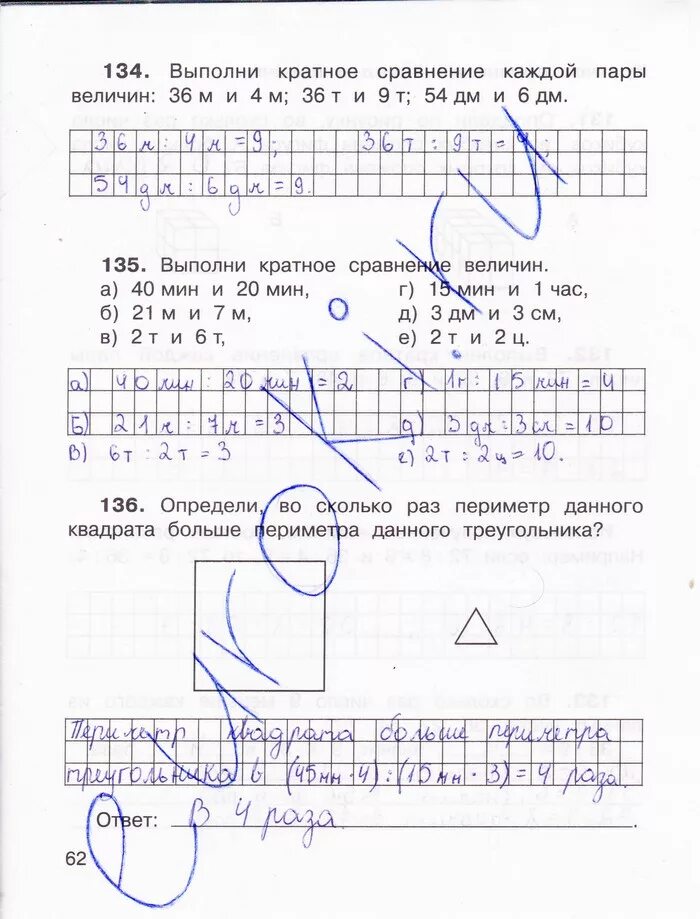 134. Выполни кратное сравнение каждой пары
величин: 36 м и 4 м; 36 т и 9 т; 54 дм и 6 дм.
36 м : 4 м = 9; 36 т : 9 т = 4;
54 дм : 6 дм = 9.
135. Выполни кратное сравнение величин.
а) 40 мин и 20 мин, г) 15 мин и 1 час,
б) 21 м и 7 м, д) 3 дм и 3 см,
в) 2 т и 6 т, е) 2 т и 2 ц.
а) 40 мин : 20 мин = 2 г) 1 ч : 15 мин = 4
Б) 21 м : 7 м = 3 д) 3 дм : 3 см = 10
В) 6т : 2т = 3 е) 2т : 2ц = 10.
136. Определи, во сколько раз периметр данного
квадрата больше периметра данного треугольника?
Периметр квадрата больше периметра
треугольника в (45мм · 4) : (15мм · 3) = 4 раза.
Ответ: В 4 раза.
62